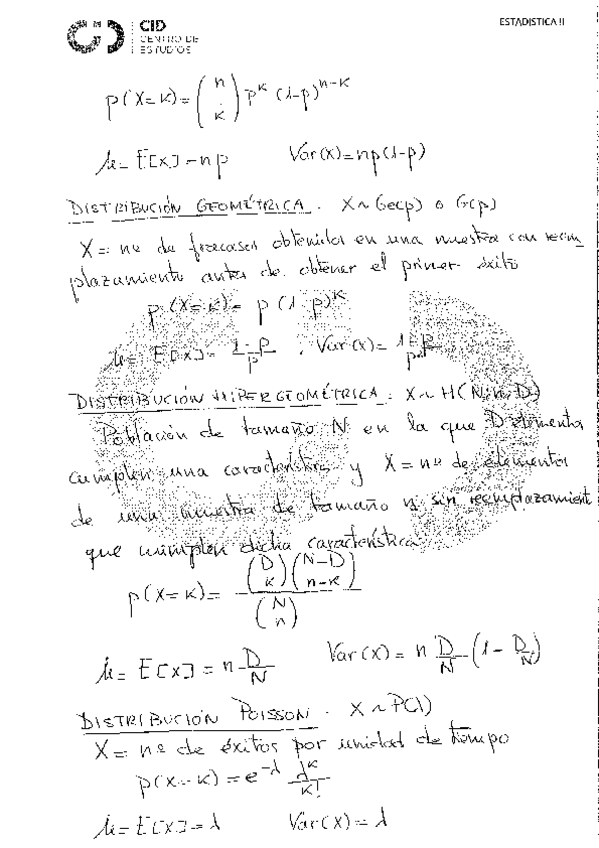 CID
CENTRO DE
ESTUDIOS
ESTADISTICA II
p(X=k)=(n k) p^k (1-p)^{n-k}
μ= E[X] = np Var(X)=np(1-p)
DISTRIBUCIÓN GEOMÉTRICA. X~Ge(p) o G(p)
X = nº de fracasos obtenidos en una muestra con reem
plazamiento antes de obtener el primer éxito
p(X=k)= p(1-p)^k
μ= E[X]= (1-p)/p , Var(X)=
DISTRIBUCIÓN HIPERGEOMÉTRICA. X~H(N,n,D)
Población de tamaño N en la que D elementos
cumplen una característica y X = nº de elementos
de una muestra de tamaño n sin reemplazamient
que cumplen dicha característica
p(X=k)= (D k)(N-D n-k) / (N n)
μ= E[X] = n D/N Var(X) = n D/N (1 - D/N)
DISTRIBUCIÓN POISSON. X~P(λ)
X = nº de éxitos por unidad de tiempo
p(X=k) = e^{-λ} λ^k/k!
μ= E[X] = λ Var(X) = λ